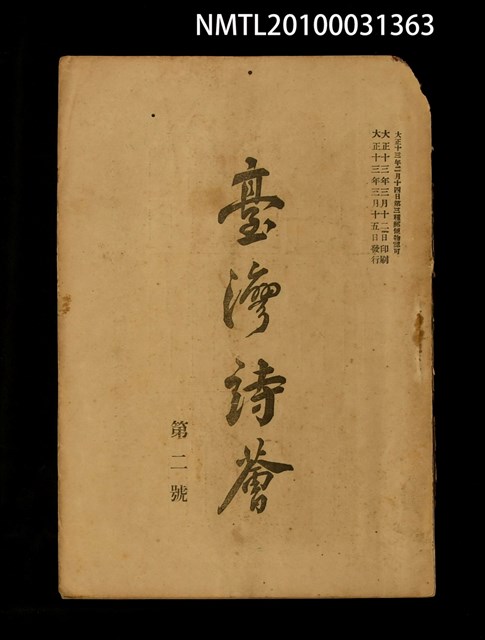 NMTL20100031363
大正十三年二月十四日第三種郵便物認可
大正十三年三月十二日印刷
大正十三年三月十五日發行
臺灣詩薈
第二號